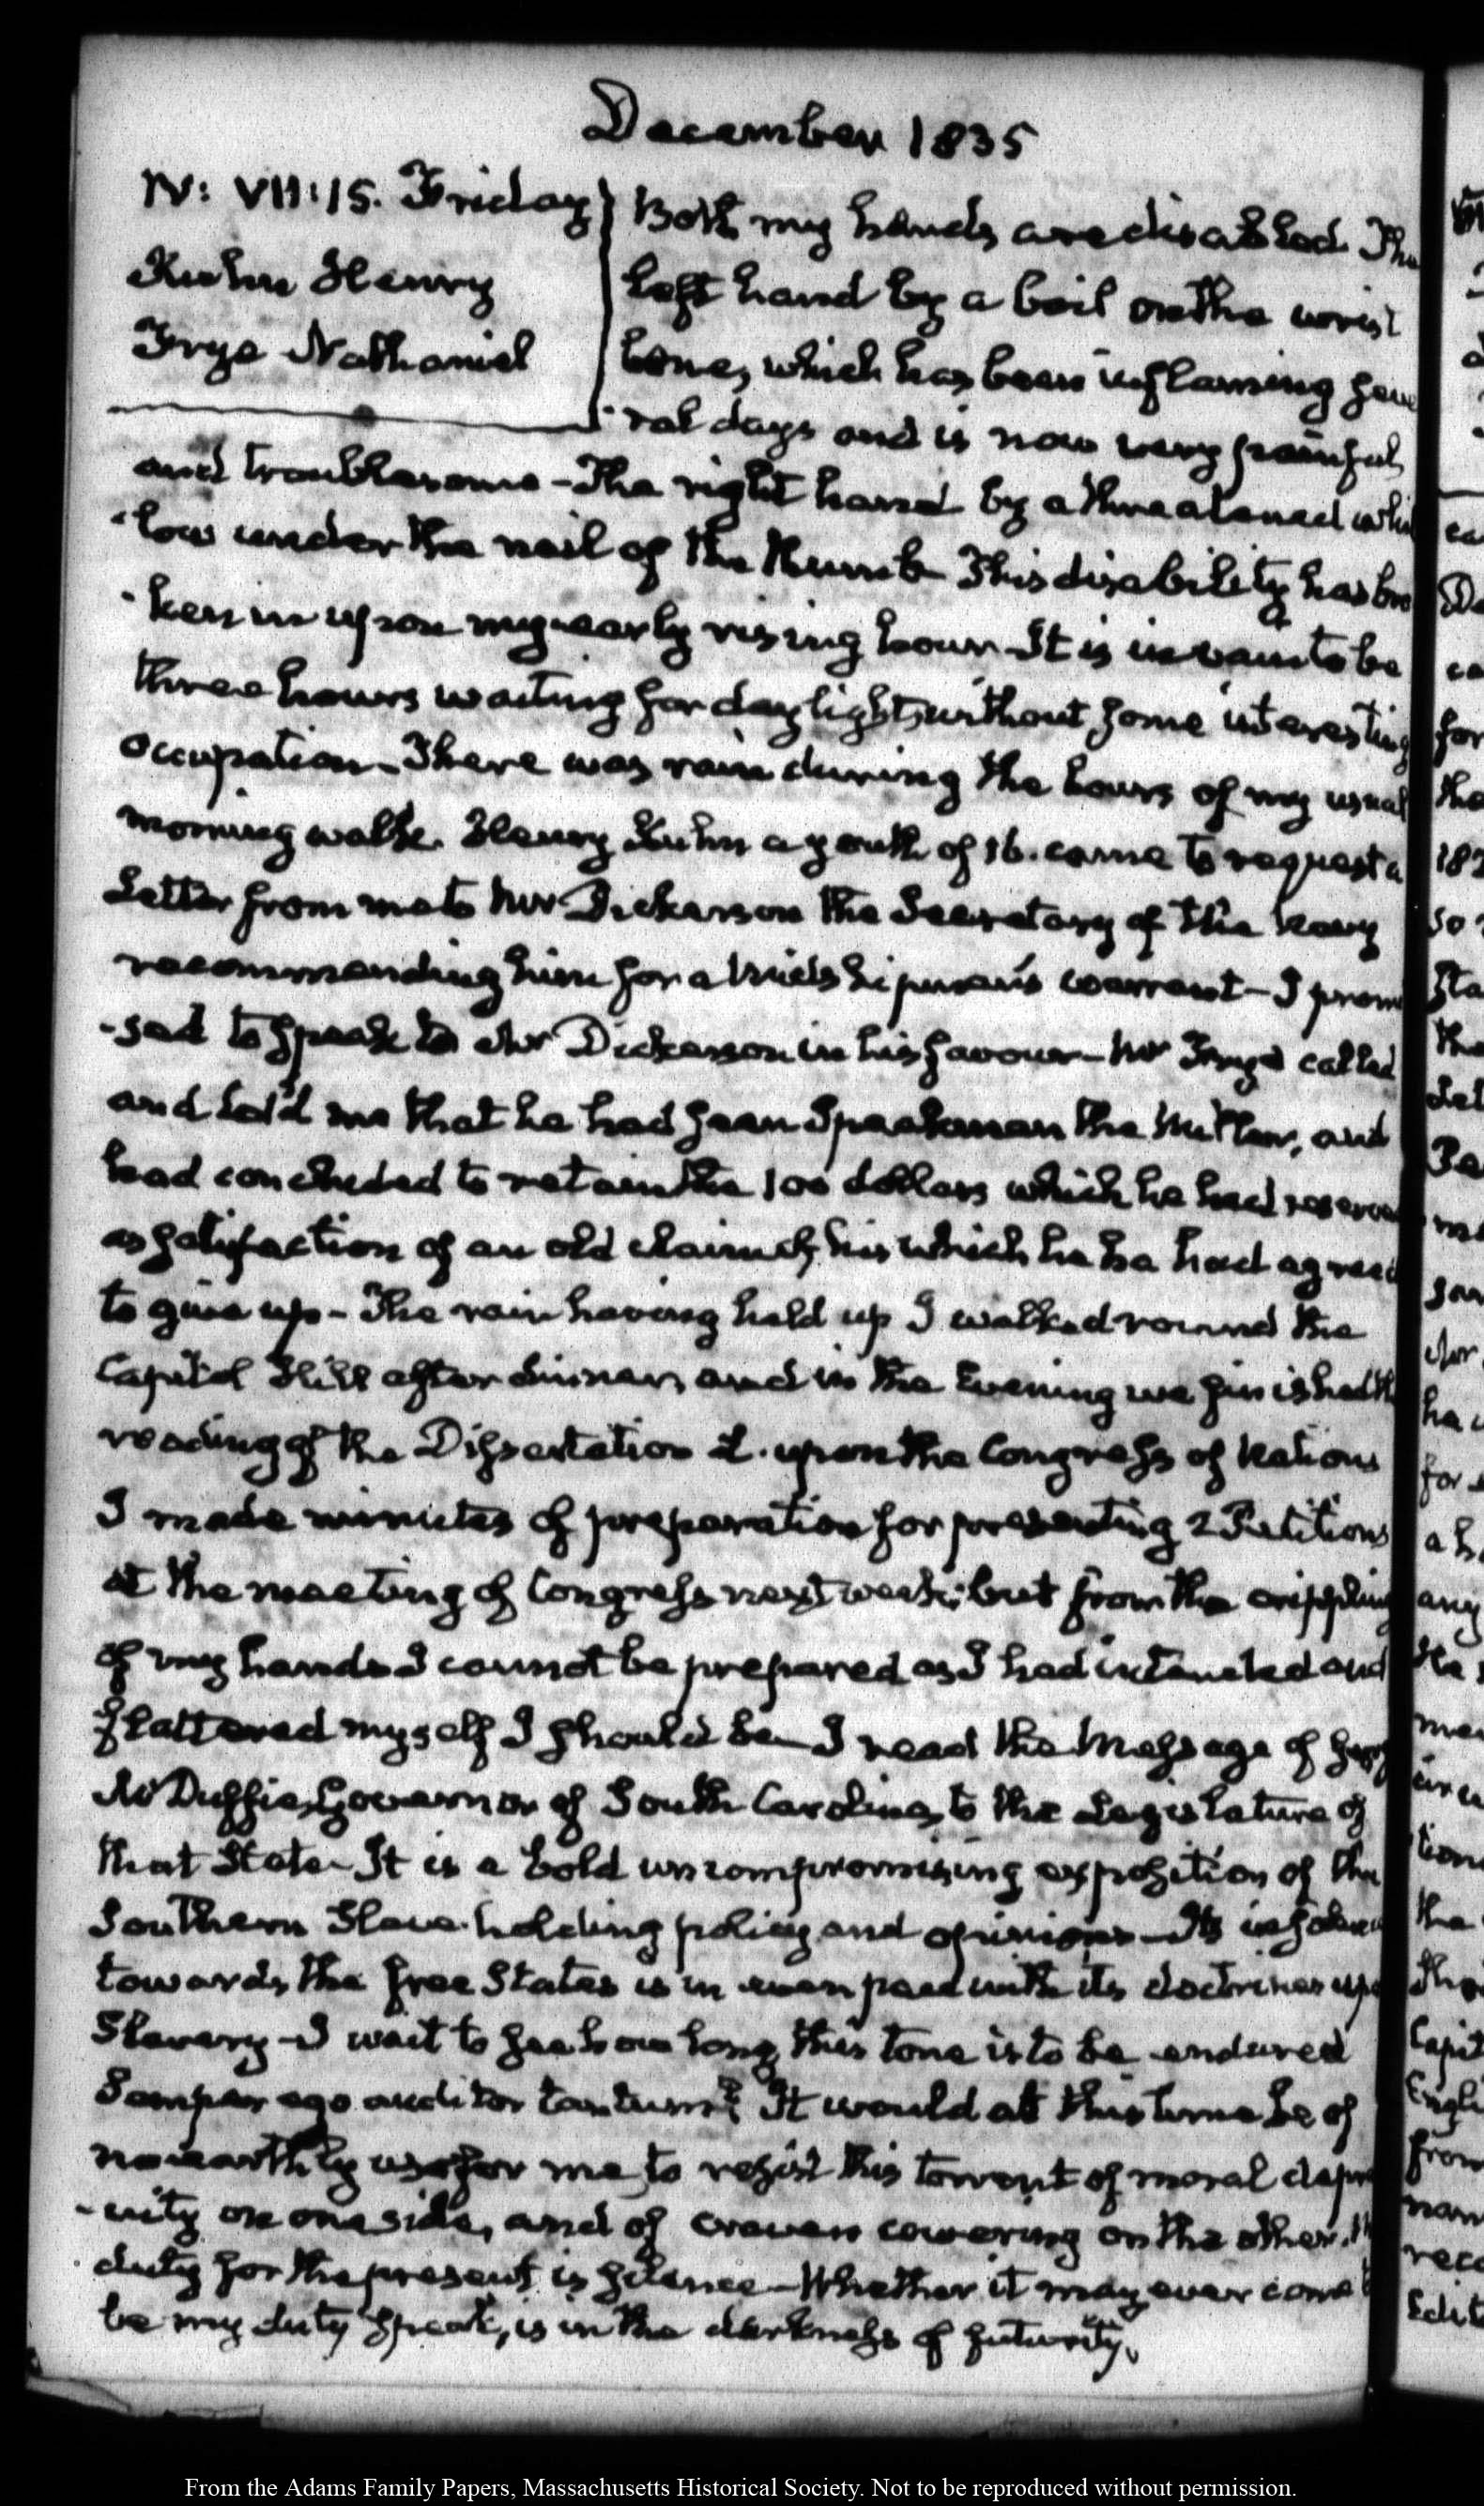 December 1835
IV: VII:15. Friday
Kuhn Henry
Frye Nathaniel
Both my hands are disabled. The
left hand by a boil on the wrist
bone, which has been inflaming seve
-ral days and is now very painful
and troublesome - The right hand by a threatened whit
-low under the nail of the thumb - This disability has bro
-ken in upon my early rising hour - It is in vain to be
three hours waiting for day light, without some interesting
occupation - There was rain during the hours of my usual
morning walk. Henry Kuhn a youth of 16. came to request a
Letter from me to Mr Dickerson the Secretary of the Navy
recommending him for a Midshipman's warrant - I prom
-sed to speak to Mr Dickerson in his favour - Mr Frye called
and told me that he had seen Speakman the Miller, and
had concluded to retain the 100 dollars which he had reserved
as satisfaction of an old claim of his which he he had agreed
to give up - The rain having held up I walked round the
Capitol Hill after dinner, and in the Evening we finished the
reading of the Dissertation 2. upon the Congress of Nations
I made minutes of preparation for presenting 2 Petitions
at the meeting of Congress next week; but from the crippling
of my hands I cannot be prepared as I had intended and
flattered myself I should be - I read the Message of
McDuffie, Governor of South Carolina, to the Legislature of
that State - It is a bold uncompromising exposition of the
Southern Slave-holding policy and opinions - Its insolence
towards the free States is in even pace with its doctrines upon
Slavery - I wait to see how long this tone is to be endured
Semper ego auditor tantum? It would at this time be of
no earthly use for me to resist this torrent of moral depra
-vity on one side, and of craven cowering on the other.
duty for the present is silence - Whether it may ever come
be my duty speak, is in the darkness of futurity.
From the Adams Family Papers, Massachusetts Historical Society. Not to be reproduced without permission.